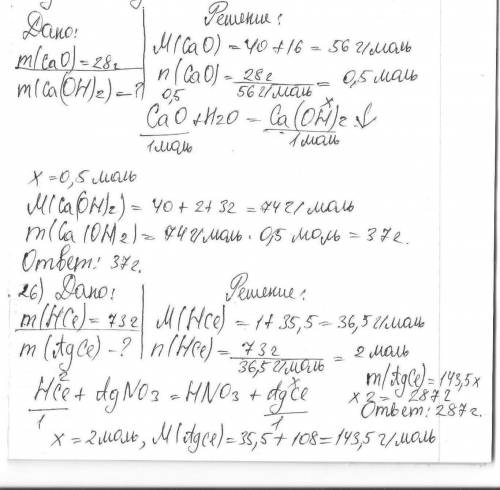 Дано:
m(CaO) = 28г
m(Ca(OH)2) = ?
Решение:
M(CaO) = 40 + 16 = 56 г/моль
n(CaO) = 28г / 56 г/моль = 0,5 моль
0,5 x
CaO + H2O = Ca(OH)2 ↓
1 моль 1 моль
x = 0,5 моль
M(Ca(OH)2) = 40 + 2 + 32 = 74 г/моль
m(Ca(OH)2) = 74 г/моль · 0,5 моль = 37 г.
Ответ: 37 г.
26) Дано:
m(HCl) = 73 г
m(AgCl) - ?
Решение:
M(HCl) = 1 + 35,5 = 36,5 г/моль
n(HCl) = 73 г / 36,5 г/моль = 2 моль
2 x
HCl + AgNO3 = HNO3 + AgCl
1 1
m(AgCl) = 143,5 x
x 2 = 287 г
Ответ: 287 г.
x = 2 моль, M(AgCl) = 35,5 + 108 = 143,5 г/моль